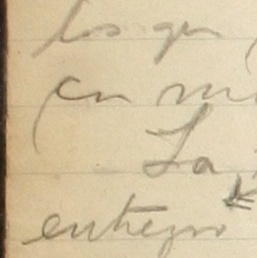 los que
en
La
entrego